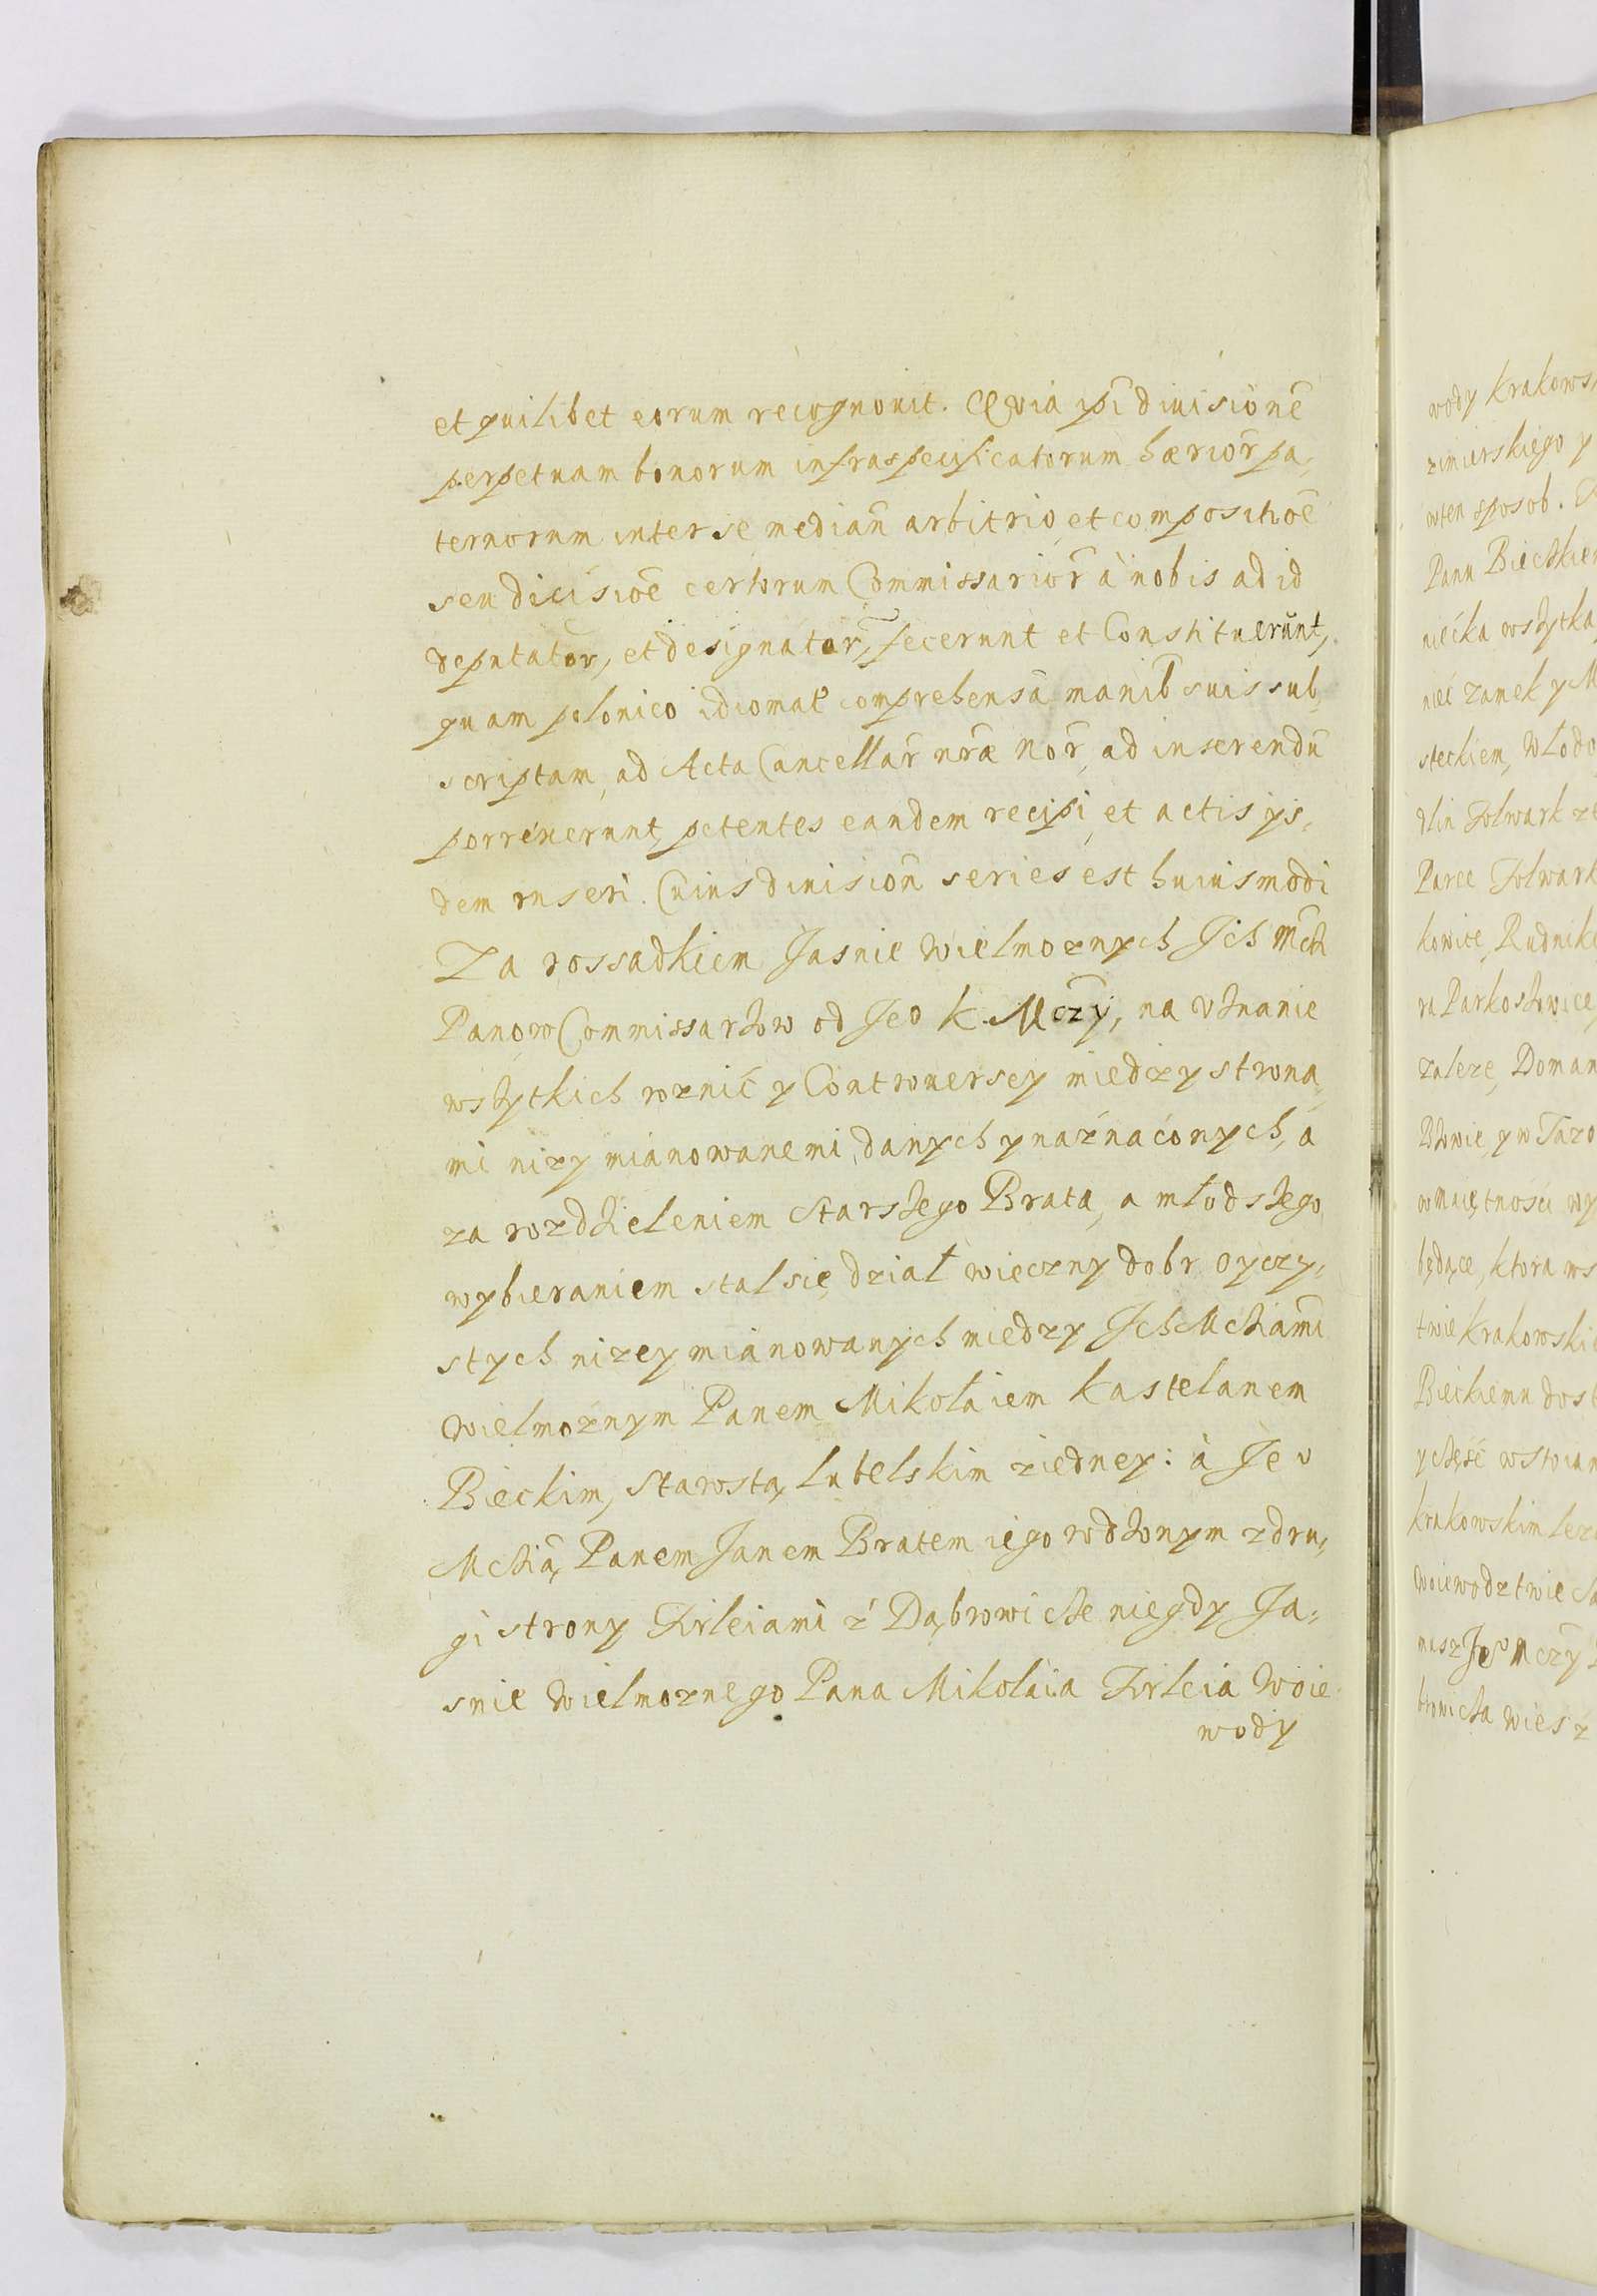 et quilibet eorum recognouit. Quia ipi diuisionē
perpetuam bonorum infraspecificatorum hæriōr pa,
ternorum inter se mediañ arbitrio, et compositioē
seu dicisioē certorum Commissarior̃ à nobis ad id
deputator̃, et designator̃, fecerunt et Constituerunt,
quam polonico idiomate comprehensã manib̃ suis sub,
scriptam, ad Acta Cancellar̃ nr̃æ Nor̃, ad inserendũ
porrexerunt, petentes eandem recipi, et actis ijs,
dem inseri. Cuius diuisioñ series est huiusmodi
Za rossadkiem Jasnie Wielmoznych Jch Mch̃
Panow Commissarzow od Jeo K. Mczỹ, na vznanie
wszytkich roznic y Controuersey miedzy strona,
mi nizy mianowanemi, danych y naznaconych, á
za rozdzieleniem Starszego Brata, a młodszego
wybieraniem stal się dział wieczny dobr oyczy,
stych nizey mianowanych miedzy Jch Mciami
Wielmoznym Panem Mikołaiem Kastelanem
Bieckim, Starostą Lubelskim ziedney: á Jeo
Mcią, Panem Janem Bratem iego rodzonym z dru,
gi strony Firleiami z Dąbrowicze niegdy Ja,
snie Wielmoznego Pana Mikołaia Firleia Woie
wody
wody Krakows,
zimirskiego y
wten sposob.
Panu Bieckie
niecka wszytka
niec zamek y M
steckiem, Włodo
Folwark ze
Parce Folwark
kowice, Rudniki
ra Parkoszwice,
zaleze, Doman
w maiętnosci wy
będące, ktora ws
twie Krakowski
Bieckiemu dost
Krakowskim leż
Woiewodztwie Sa
nasz Jeo Mczỹ
browicza wies z